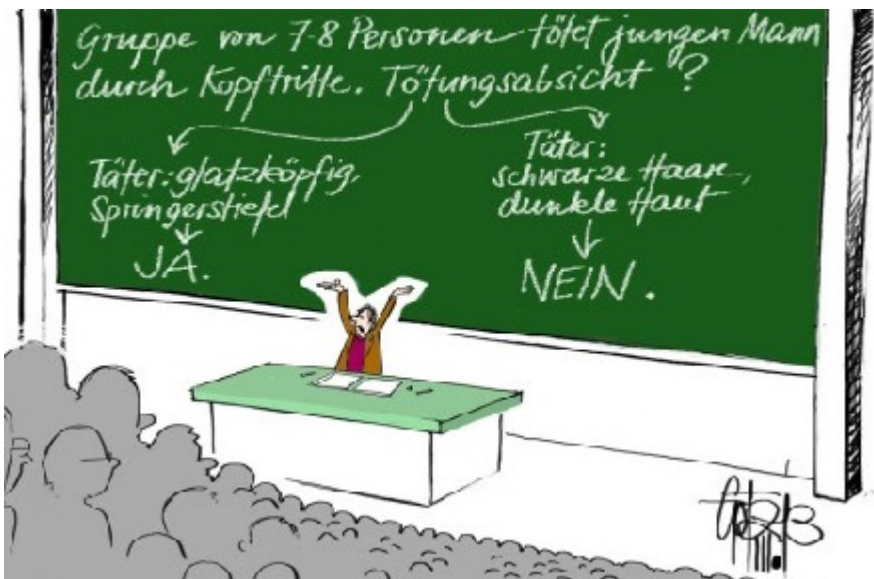 Gruppe von 7-8 Personen tötet jungen Mann
durch Kopftritte. Tötungsabsicht ?
Täter: glatzköpfig,
Springerstiefel
JA.
Täter:
schwarze Haare,
dunkle Haut
NEIN.